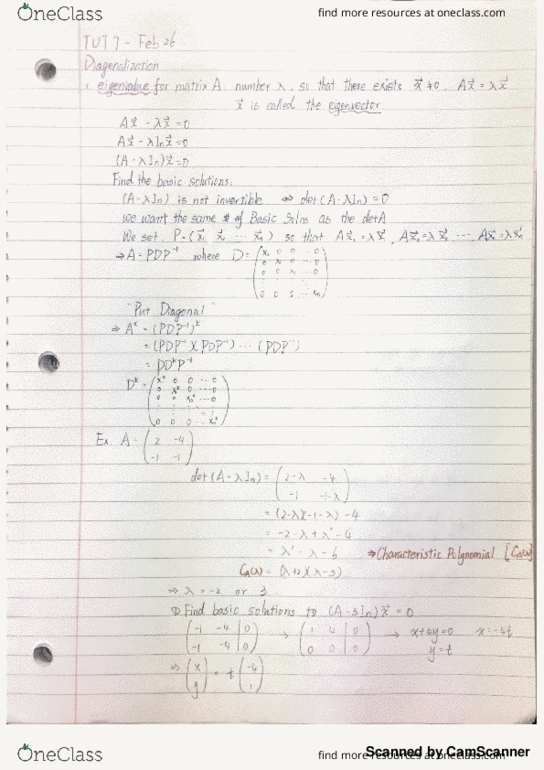 OneClass
find more resources at oneclass.com
TUT 7 - Feb 26
Diagonalization
eigenvalue for matrix A. number λ, so that there exists x⃗ ≠ 0, Ax⃗ = λx⃗
x⃗ is called the eigenvector
Ax⃗ - λx⃗ = 0
Ax⃗ - λInx⃗ = 0
(A - λIn)x⃗ = 0
Find the basic solutions:
(A - λIn) is not invertible ⇔ det(A - λIn) = 0
we want the same # of Basic Solns as the detA
We set P = (x⃗1 x⃗2 ... x⃗n) so that Ax⃗1 = λx⃗, Ax⃗2 = λx⃗2 ... Ax⃗n = λx⃗n
⇒ A = PDP⁻¹ where D =
"Put Diagonal"
⇒ Aᵏ = (PDP⁻¹)ᵏ
= (PDP⁻¹)(PDP⁻¹) ... (PDP⁻¹)
= PDᵏP⁻¹
Dᵏ =
Ex. A = (2 -4
-1 -1)
det(A - λIn) = (2-λ -4
-1 -1-λ)
= (2-λ)(-1-λ) - 4
= -2 - λ + λ² - 4
= λ² - λ - 6 ⇒ Characteristic Polynomial [CA(λ)]
CA(λ) = (λ+2)(λ-3)
⇒ λ = -2 or 3
① Find basic solutions to (A - 3In)x⃗ = 0
(-1 -4 | 0 → (1 4 | 0 → x+4y=0 x=-4t
-1 -4 | 0) 0 0 | 0) y=t
⇒ (x = t (-4
y) 1)
OneClass
find more resources at oneclass.com
Scanned by CamScanner